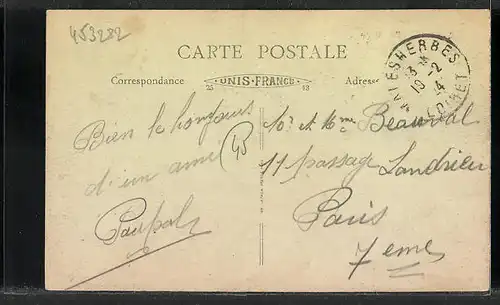 453282
CARTE POSTALE
Correspondance
UNIS-FRANCE
25
43
Adresse
MALESHERBES
13 * 2
19 14
LOIRET
Bien le bonjour
d'un ami
45
Mr et Mme Beauval
11 passage Landrieu
Paris
7 eme